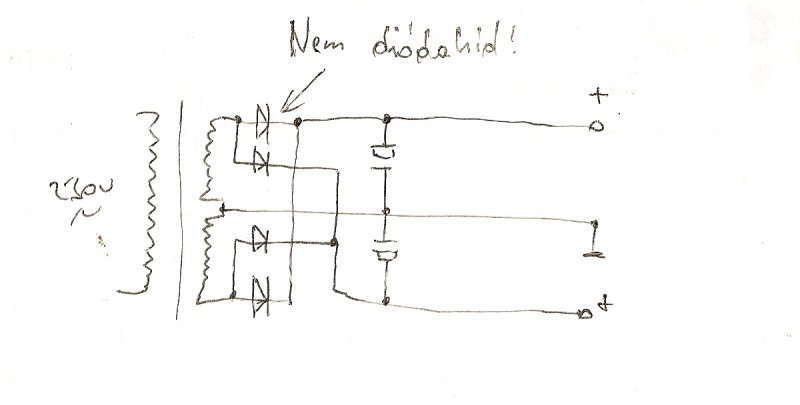 Nem diódahíd!
+
230V
~
+